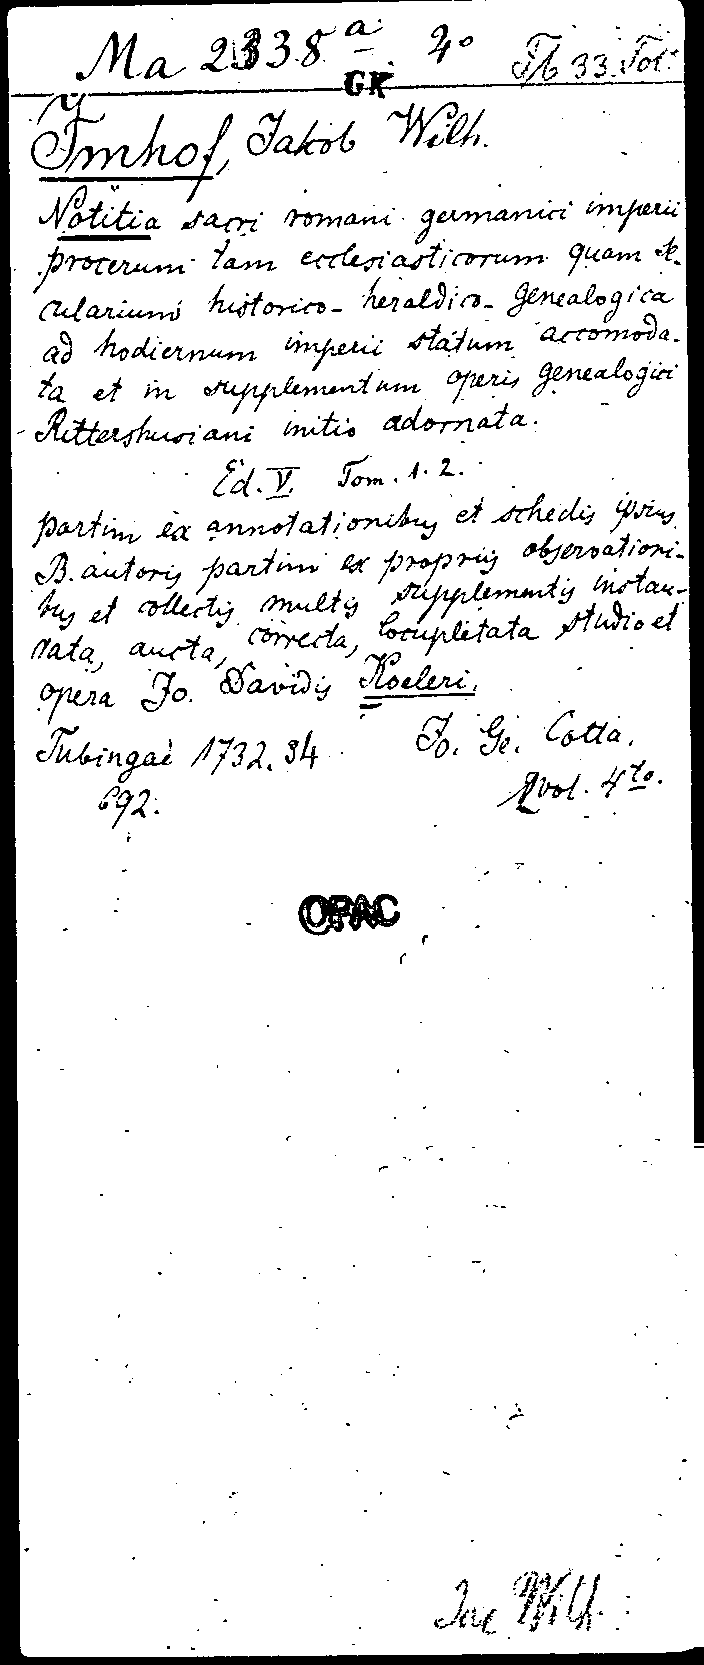 Ma 2338 a 4° Tb 33. Fol.
GK
Imhof, Jakob Wilh.
Notitia sacri romani germanici imperii
procerum tam ecclesiasticorum quam se-
cularium historico- heraldico- genealogica
ad hodiernum imperii statum accomoda-
ta et in supplementum operis genealogici
Rittershusiani initio adornata.
Ed. V. Tom. 1. 2.
partim ex annotationibus et schedis ipsius
B. autoris partim ex propriis observationi-
bus et collectis multis supplementis instau-
rata, aucta, correcta, locupletata studio et
opera Jo. Davidis Koeleri.
Tubingae 1732. 34 Jo. Ge. Cotta.
692. vol. 4to.
OPAC
Jac Wilh.